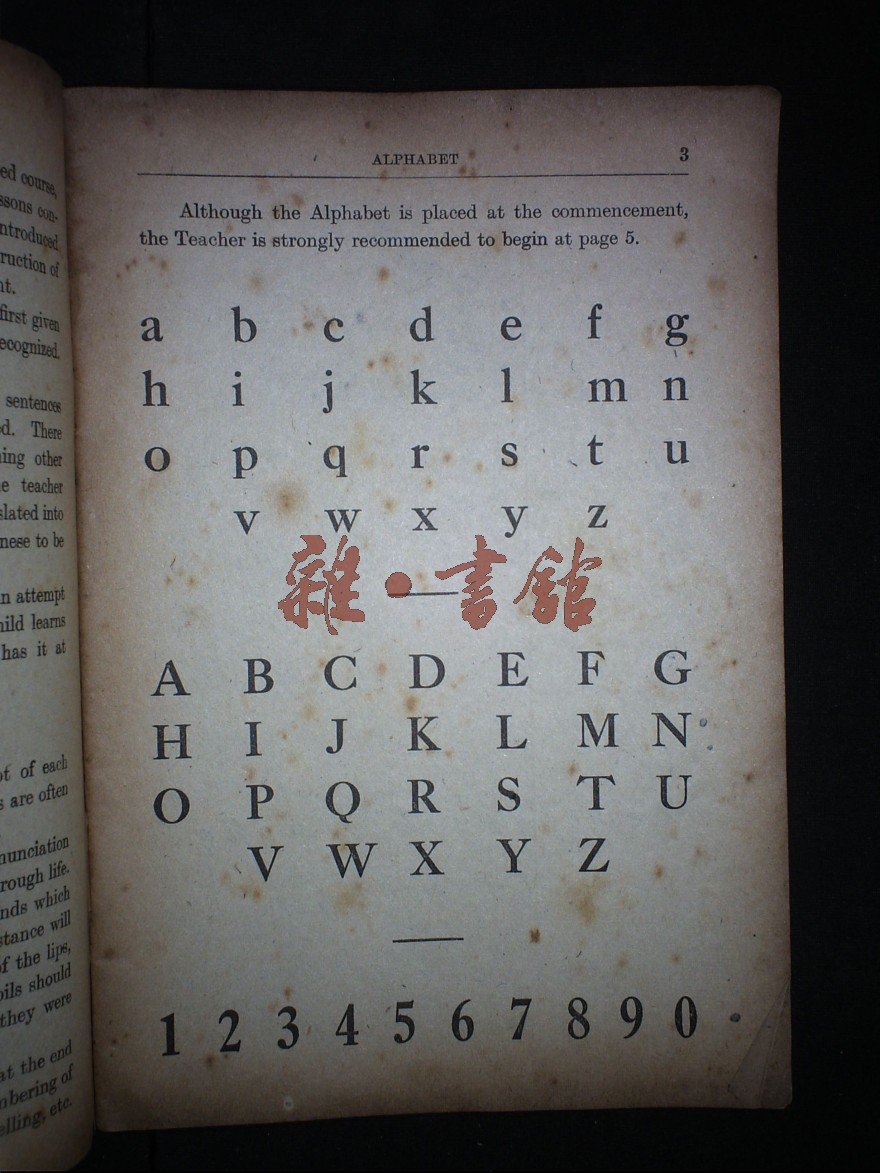 ed course,
ssons con-
ntroduced
ruction of
nt.
first given
ecognized.
sentences
ed. There
ning other
e teacher
slated into
nese to be
n attempt
hild learns
has it at
ot of each
s are often
nunciation
rough life.
nds which
stance will
of the lips,
pils should
they were
at the end
nbering of
elling, etc.
ALPHABET 3
Although the Alphabet is placed at the commencement,
the Teacher is strongly recommended to begin at page 5.
a b c d e f g
h i j k l m n
o p q r s t u
v w x y z
雜·書館
A B C D E F G
H I J K L M N
O P Q R S T U
V W X Y Z
1 2 3 4 5 6 7 8 9 0